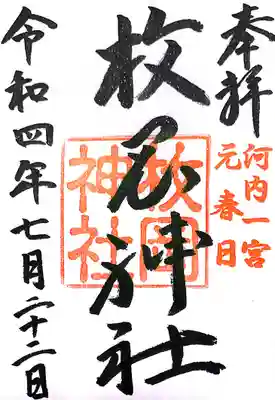 奉拝
河内一宮
元春日
枚岡神社
枚岡神社
令和四年七月二十二日